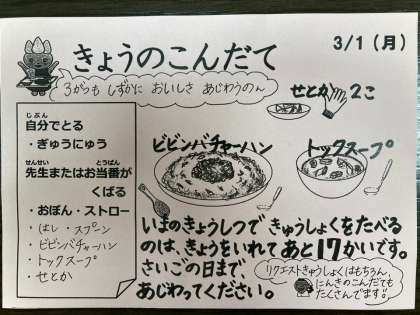 きょうのこんだて
3/1(月)
3がつも しずかに おいしさ あじわうのん
せとか 2こ
じぶん
自分でとる
・ぎゅうにゅう
せんせい とうばん
先生またはお当番が
くばる
・おぼん・ストロー
・はし・スプーン
・ビビンバチャーハン
・トックスープ
・せとか
ビビンバチャーハン
トックスープ
いまのきょうしつで きゅうしょくをたべる
のは、きょうをいれて あと17かいです。
さいごの日まで、
あじわってください。
リクエストきゅうしょくはもちろん、
にんきのこんだても
たくさんでます!!